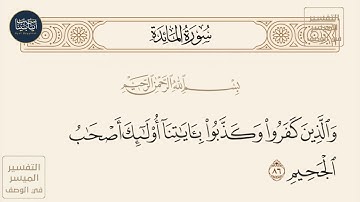 سُورَةُ المَائِدَة
بِسْمِ اللَّهِ الرَّحْمَٰنِ الرَّحِيمِ
وَالَّذِينَ كَفَرُوا۟ وَكَذَّبُوا۟ بِـَٔايَـٰتِنَآ أُو۟لَـٰٓئِكَ أَصْحَـٰبُ
الْجَحِيمِ ٨٦
التفسير
الميسر
في الوصف